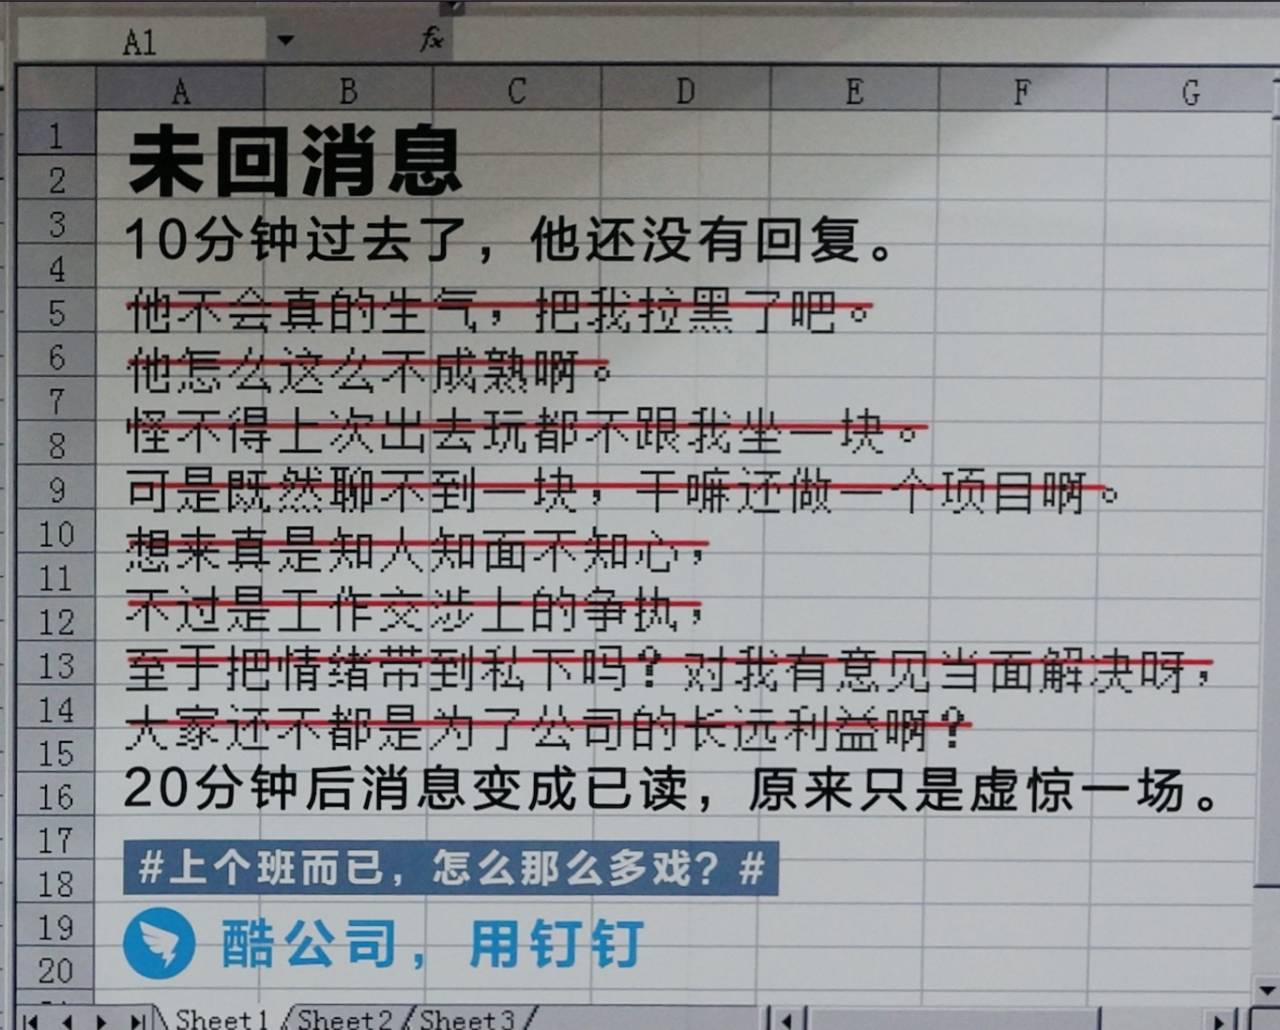 A1 fx
A B C D E F G
1
2
未回消息
3
4
10分钟过去了，他还没有回复。
5
他不会真的生气，把我拉黑了吧。
6
他怎么这么不成熟啊。
7
8
怪不得上次出去玩都不跟我坐一块。
9
可是既然聊不到一块，干嘛还做一个项目啊。
10
想来真是知人知面不知心，
11
12
不过是工作交涉上的争执，
13
至于把情绪带到私下吗？对我有意见当面解决呀，
14
15
大家还不都是为了公司的长远利益啊？
16
20分钟后消息变成已读，原来只是虚惊一场。
17
18
#上个班而已，怎么那么多戏？#
19
20
酷公司，用钉钉
Sheet1 Sheet2 Sheet3